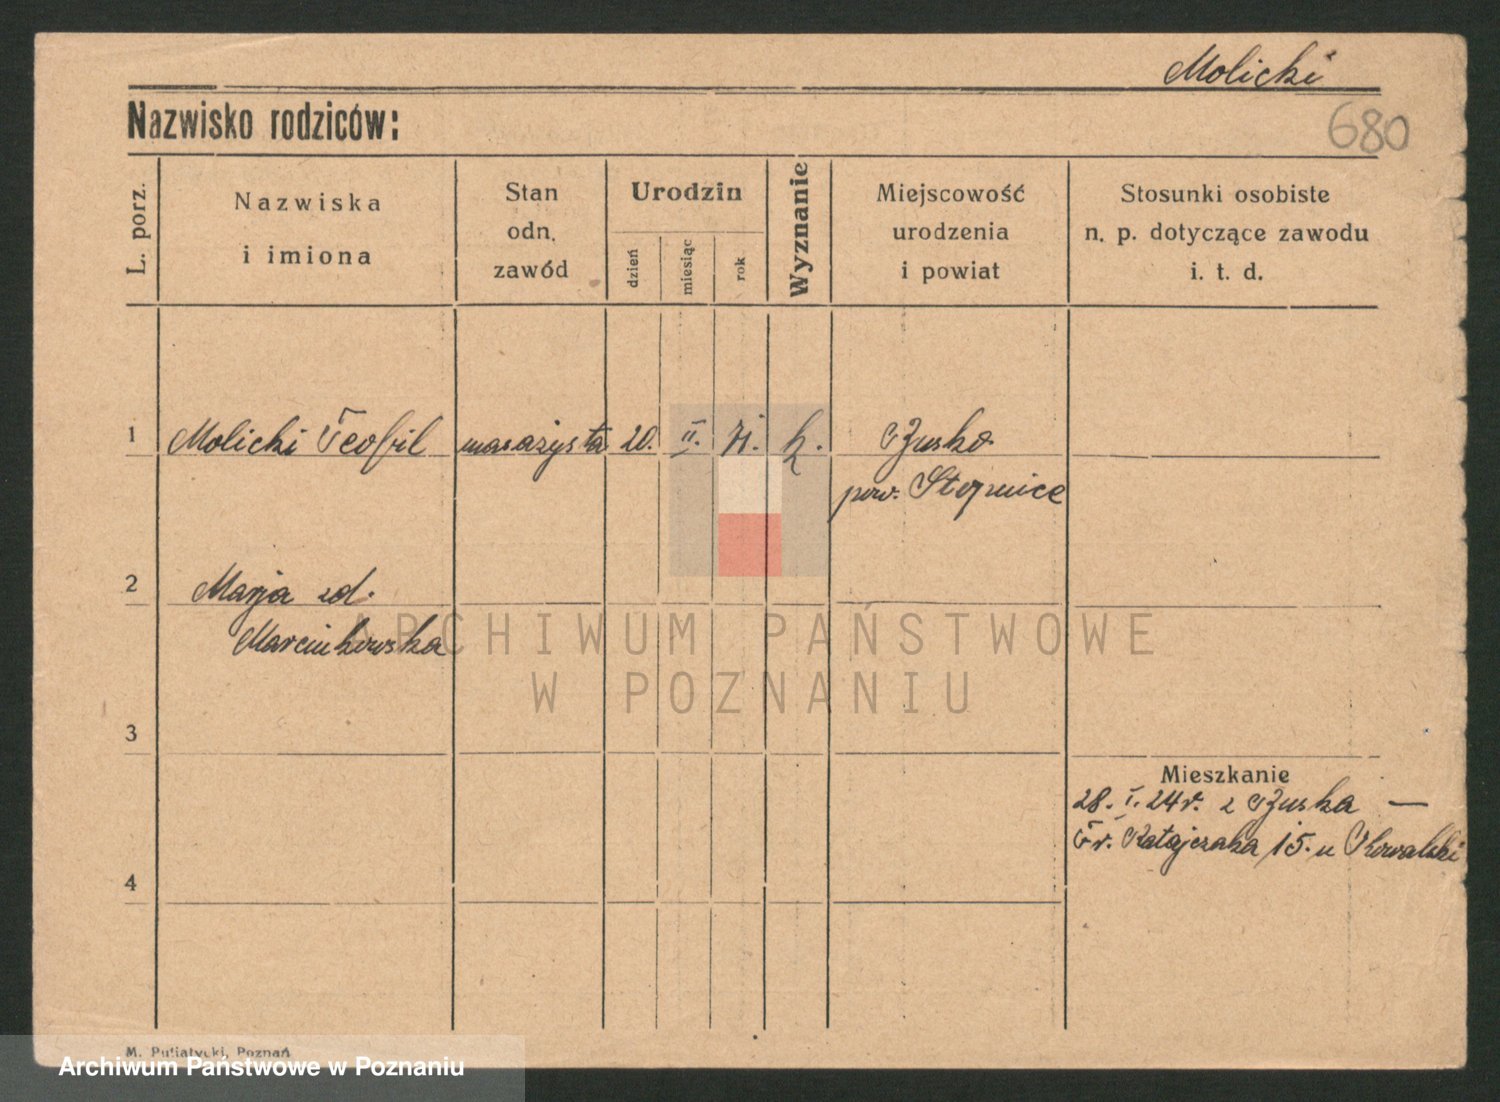 Molicki
Nazwisko rodziców:
680
L. porz.
Nazwiska
i imiona
Stan
odn.
zawód
Urodzin
dzień
miesiąc
rok
Wyznanie
Miejscowość
urodzenia
i powiat
Stosunki osobiste
n. p. dotyczące zawodu
i. t. d.
1 Molicki Teofil masażysta 20. II. 71. k. Busko
pow. Stopnice
2 Marja zd.
Marcinkowska
ARCHIWUM PAŃSTWOWE
W POZNANIU
3
Mieszkanie
28. I. 24 r. z Buska —
Fr. Ratajczaka 15. u Kowalski
4
M. Putiatycki, Poznań
Archiwum Państwowe w Poznaniu